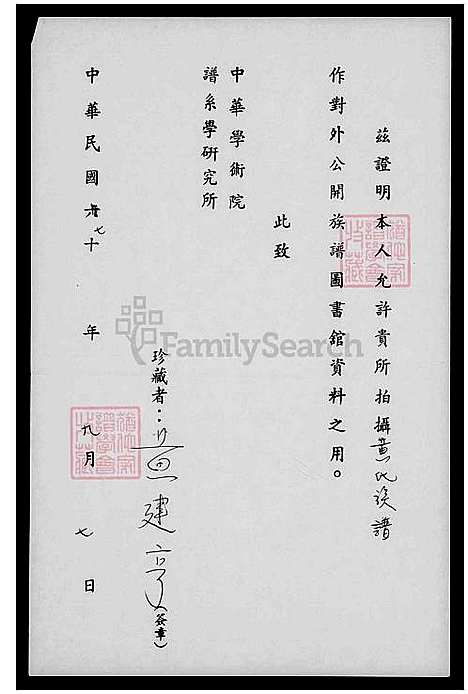 茲證明本人允許貴所拍攝黃氏族譜
作對外公開族譜圖書館資料之用。
此致
中華學術院
譜系學研究所
珍藏者：黃建亨(簽章)
中華民國七十年九月七日
FamilySearch